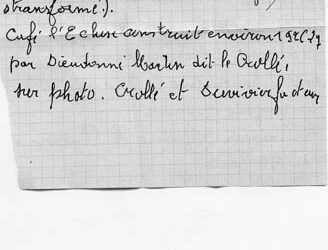 transformé).
Café l'Ecluse construit environ
par Dieudonné Martin dit le Crollé,
sur photo. Crollé et Duvivier